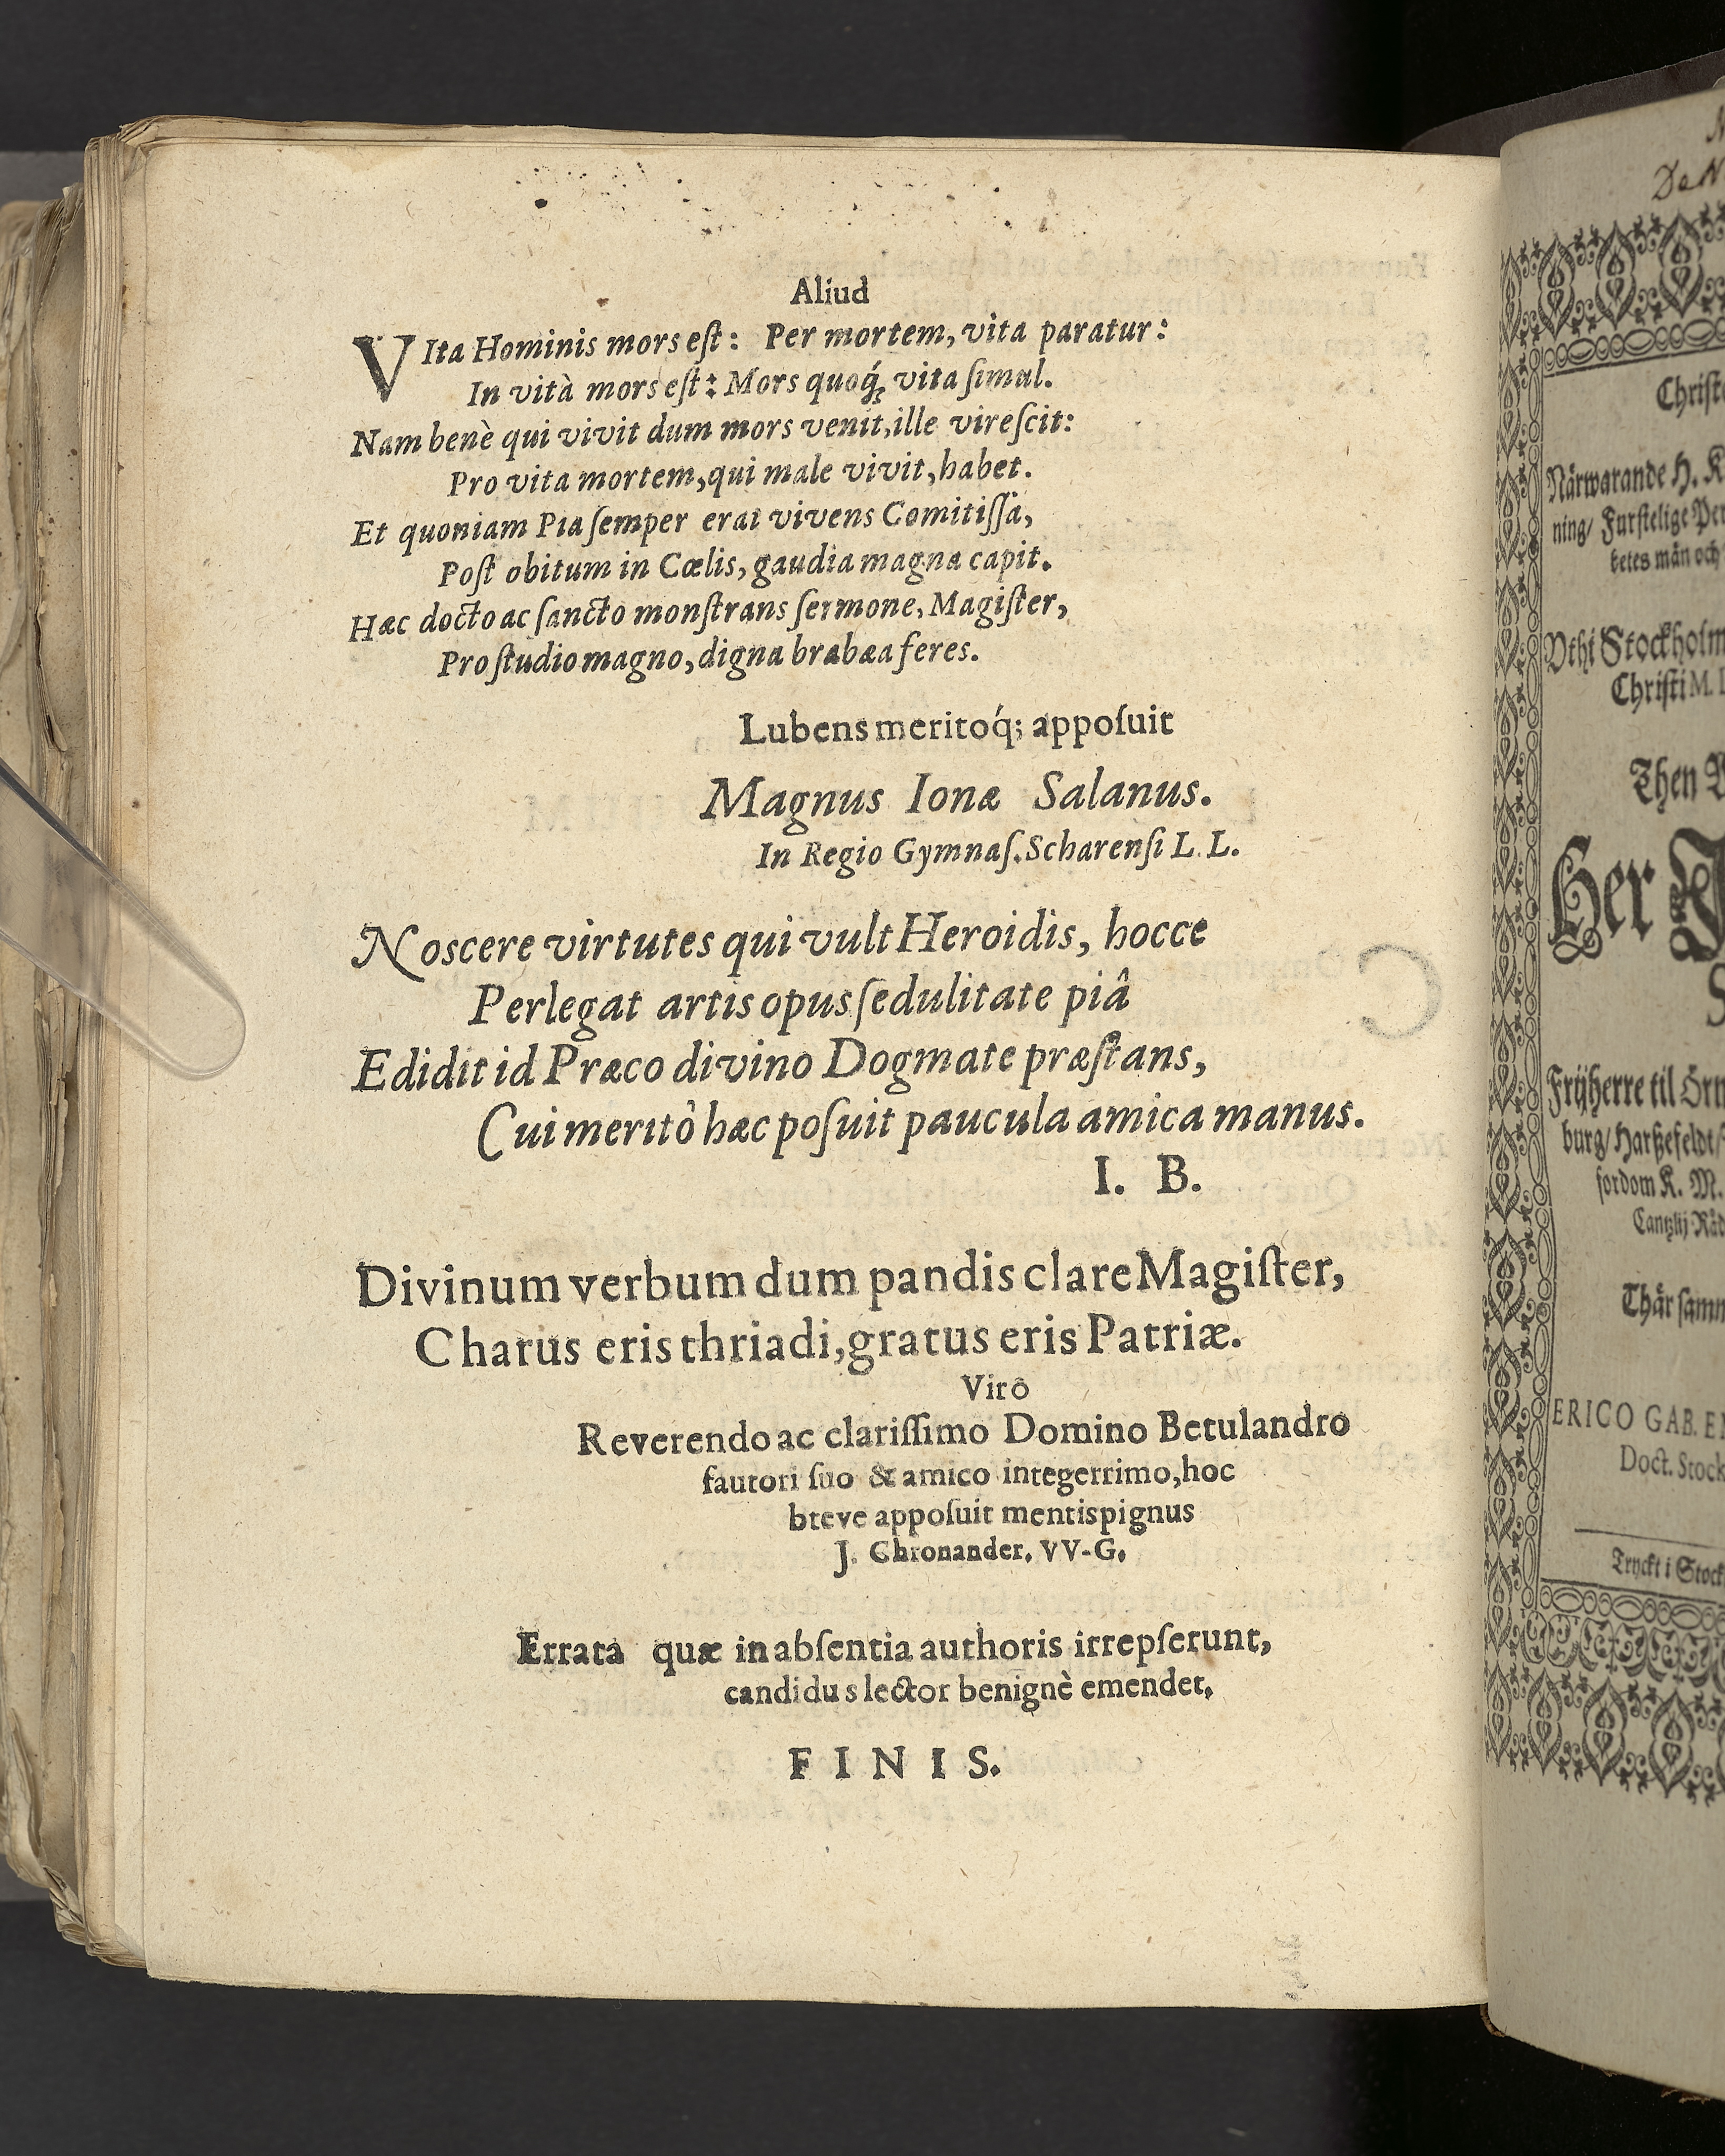 Aliud
VIta Hominis mors eſt: Per mortem, vita paratur:
In vità mors eſt: Mors quoq́; vita ſimul.
Nam benè qui vivit dum mors venit, ille vireſcit:
Pro vita mortem, qui male vivit, habet.
Et quoniam Pia ſemper erat vivens Comitiſſa,
Poſt obitum in Cœlis, gaudia magna capit.
Hæc docto ac ſancto monſtrans ſermone, Magiſter,
Pro ſtudio magno, digna brabæa feres.
Lubens meritoq́; appoſuit
Magnus Ionæ Salanus.
In Regio Gymnaſ. Scharenſi L. L.
Noscere virtutes qui vult Heroidis, hocce
Perlegat artis opus ſedulitate piâ
Edidit id Præco divino Dogmate præſtans,
Cui meritò hæc poſuit paucula amica manus.
I. B.
Divinum verbum dum pandis clare Magiſter,
Charus eris thriadi, gratus eris Patriæ.
Virô
Reverendo ac clariſſimo Domino Betulandro
fautori ſuo & amico integerrimo, hoc
breve appoſuit mentis pignus
J. Chronander. VV-G.
Errata quæ in abſentia authoris irrepſerunt,
candidus lector benignè emendet.
FINIS.
Närwarande H. K
ning/ Furſtelige
ketes män och
Vthi Stockholm
Chriſti M.
Then
Her
Fryherre til
burg/ Harßefeldt/
fordom K. M.
Cantzlij Råd
Thär ſamm
ERICO GAB.
Doct. Stock
Tryckt i Stock